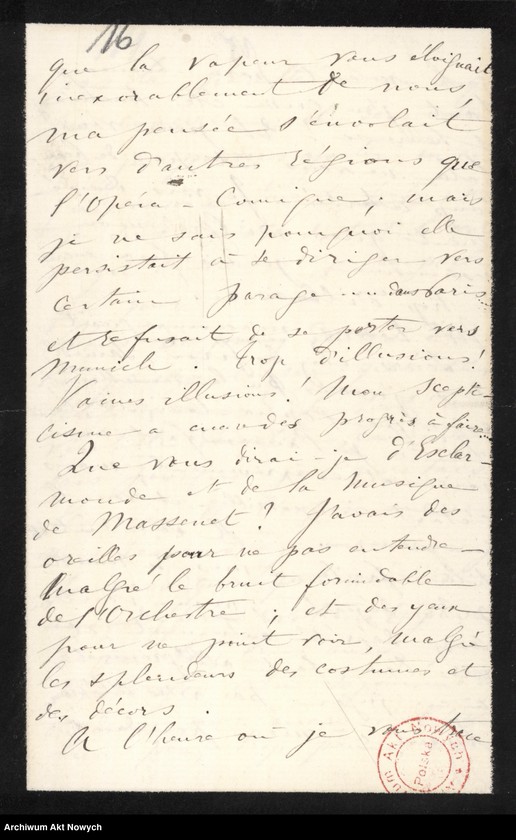 16
que la vapeur vous éloignait
inexorablement de nous,
ma pensée s'envolait
vers d'autres régions que
l'Opéra-Comique; mais
je ne sais pourquoi elle
persistait à se diriger vers
certain parage dans Paris...
et refusait de se porter vers
Munich. Trop d'illusions!
Vaines illusions! Mon scepti-
cisme a encore des progrès à faire...
Que vous dirai-je d'Esclar-
monde et de la musique
de Massenet? J'avais des
oreilles pour ne pas entendre
malgré le bruit formidable
de l'Orchestre; et des yeux
pour ne point voir, malgré
les splendeurs des costumes et
des décors.
A l'heure où je vous
Akt Nowych
Polska
Archiwum Akt Nowych